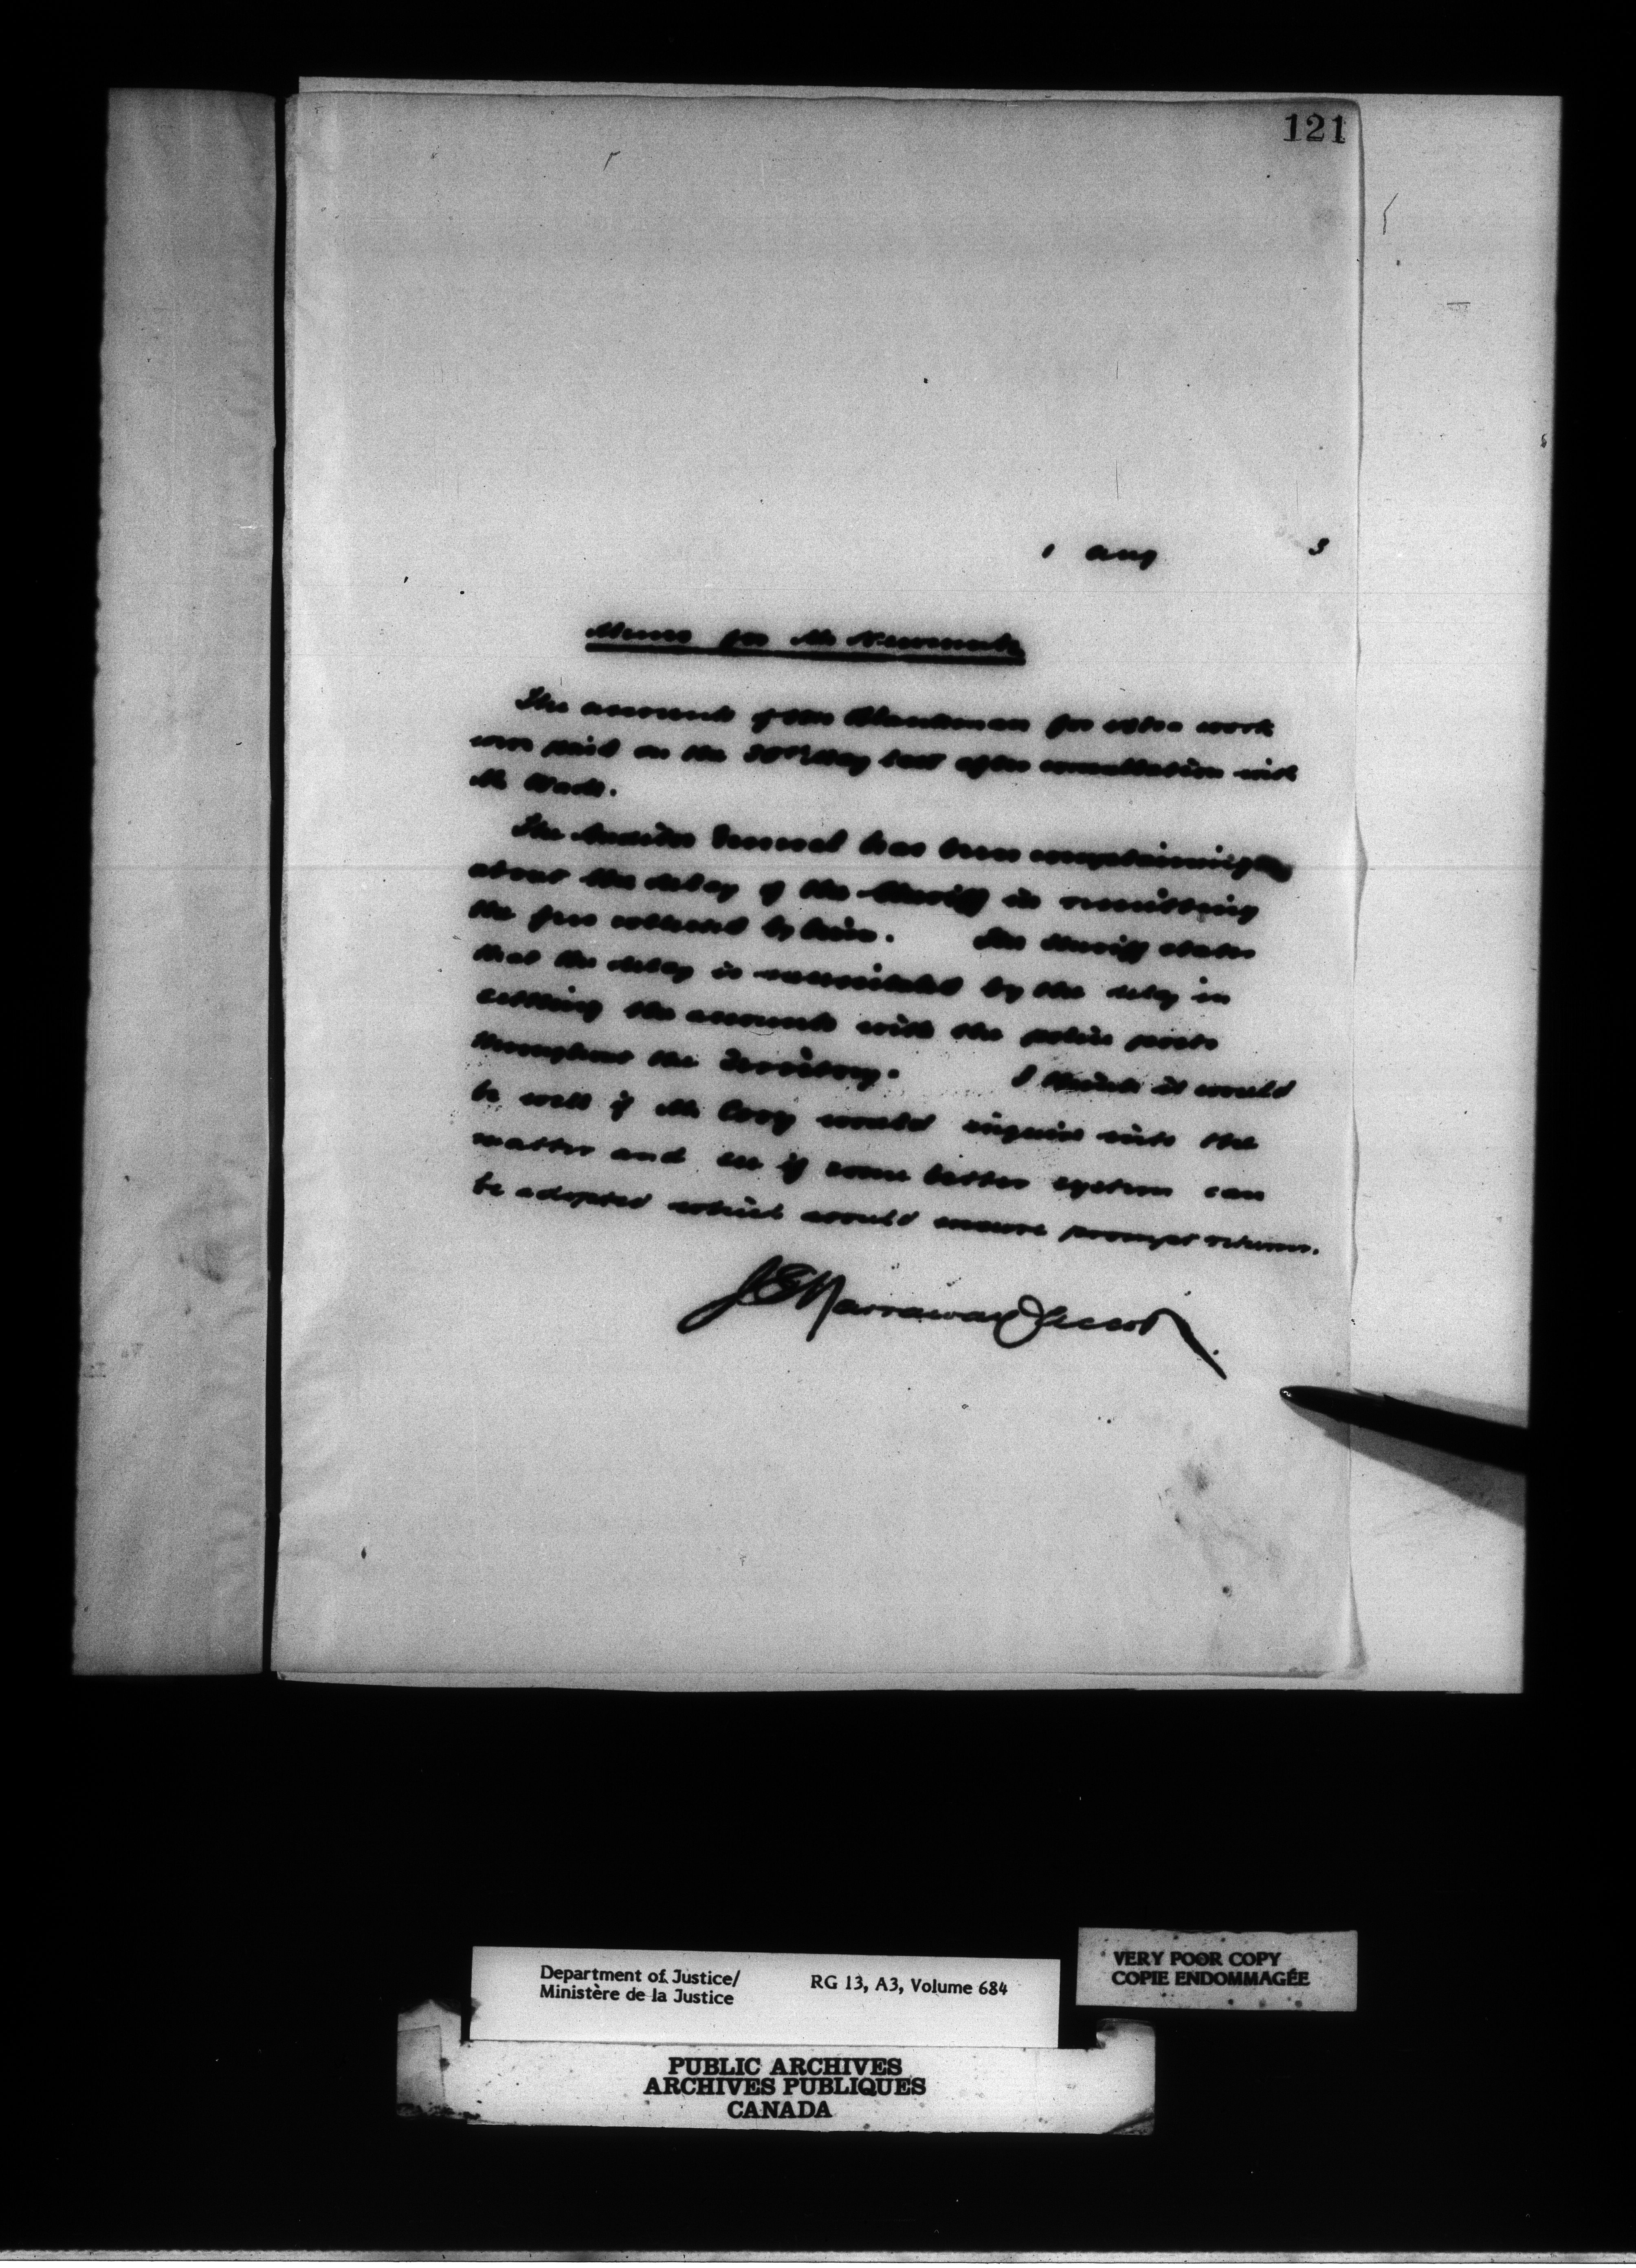 121
1 Aug 3
Memo for Mr Newcombe
The account of for extra work
was paid on the 30th May last after consultation with
Mr Wade.
The Auditor General has been complaining
about the delay of the Sheriff in remitting
the fees collected by him. The Sheriff states
that the delay is necessitated by the delay in
settling the accounts with the police posts
throughout the Territory. I think it would
be well if Mr Cory would inquire into the
matter and see if some better system can
be adopted which would ensure prompt returns.
J E Narraway
Department of Justice/ RG 13, A3, Volume 684
Ministère de la Justice
VERY POOR COPY
COPIE ENDOMMAGÉE
PUBLIC ARCHIVES
ARCHIVES PUBLIQUES
CANADA